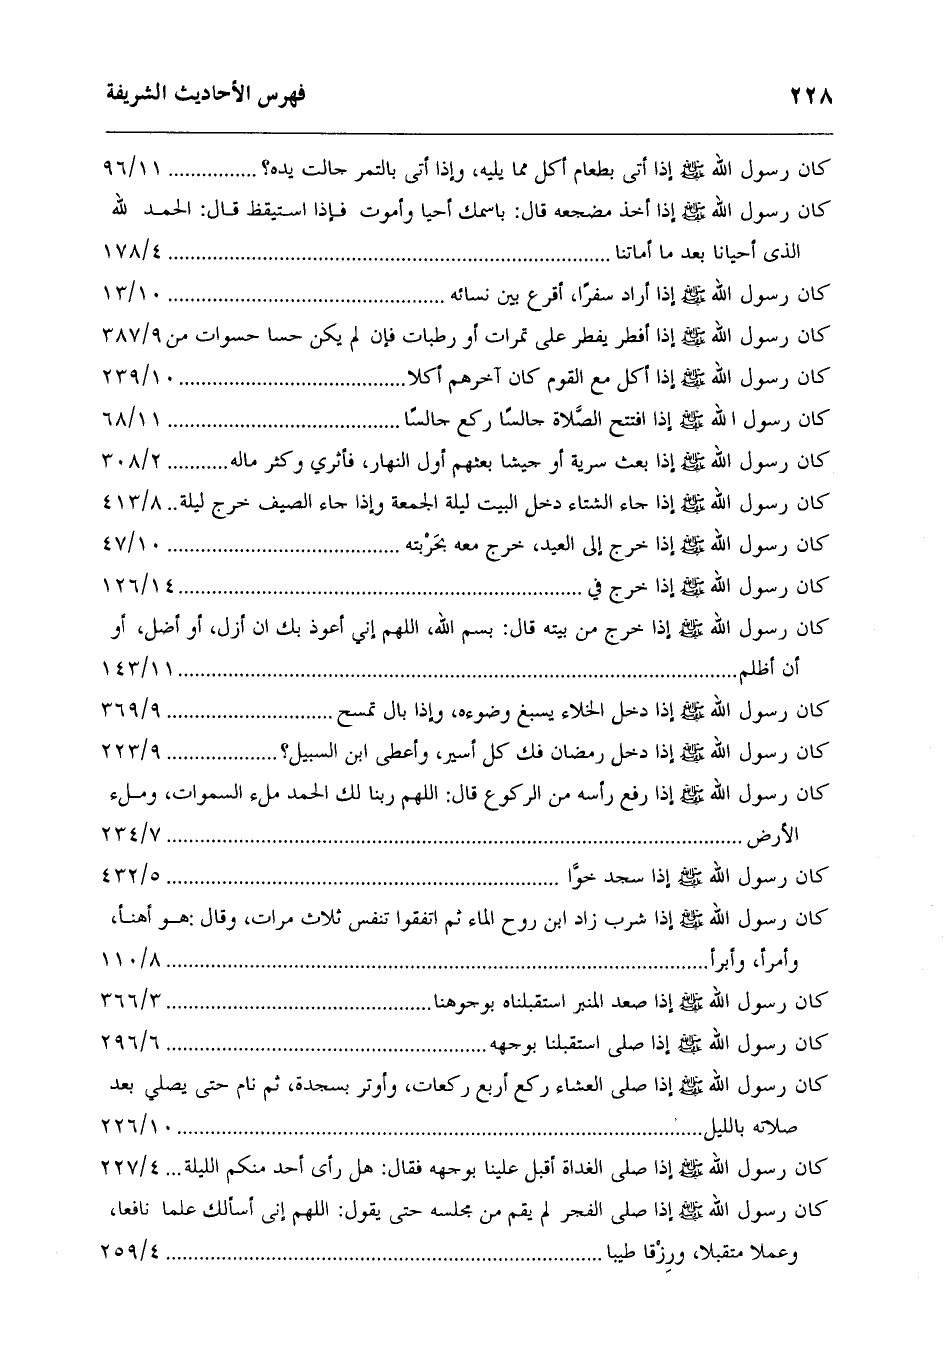 ٢٢٨ فهرس الأحاديث الشريفة
كان رسول الله ﷺ إذا أتى بطعام أكل مما يليه، وإذا أتى بالتمر جالت يده؟ ................ ٩٦/١١
كان رسول الله ﷺ إذا أخذ مضجعه قال: باسمك أحيا وأموت فإذا استيقظ قال: الحمد لله
الذى أحيانا بعد ما أماتنا ................ ١٧٨/٤
كان رسول الله ﷺ إذا أراد سفرًا، أقرع بين نسائه ................ ١٣/١٠
كان رسول الله ﷺ إذا أفطر يفطر على تمرات أو رطبات فإن لم يكن حسا حسوات من ٣٨٧/٩
كان رسول الله ﷺ إذا أكل مع القوم كان آخرهم أكلا ................ ٢٣٩/١٠
كان رسول الله ﷺ إذا افتتح الصَّلاة جالسًا ركع جالسًا ................ ٦٨/١١
كان رسول الله ﷺ إذا بعث سرية أو جيشا بعثهم أول النهار، فأثري وكثر ماله ........... ٣٠٨/٢
كان رسول الله ﷺ إذا جاء الشتاء دخل البيت ليلة الجمعة وإذا جاء الصيف خرج ليلة .. ٤١٣/٨
كان رسول الله ﷺ إذا خرج إلى العيد، خرج معه بحَرْبته ................ ٤٧/١٠
كان رسول الله ﷺ إذا خرج في ................ ١٢٦/١٤
كان رسول الله ﷺ إذا خرج من بيته قال: بسم الله، اللهم إني أعوذ بك ان أزل، أو أضل، أو
أن أظلم ................ ١٤٣/١١
كان رسول الله ﷺ إذا دخل الخلاء يسبغ وضوءه، وإذا بال تمسح ................ ٣٦٩/٩
كان رسول الله ﷺ إذا دخل رمضان فك كل أسير، وأعطى ابن السبيل؟ ................ ٢٢٣/٩
كان رسول الله ﷺ إذا رفع رأسه من الركوع قال: اللهم ربنا لك الحمد ملء السموات، وملء
الأرض ................ ٢٣٤/٧
كان رسول الله ﷺ إذا سجد خوَّا ................ ٤٣٢/٥
كان رسول الله ﷺ إذا شرب زاد ابن روح الماء ثم اتفقوا تنفس ثلاث مرات، وقال :هو أهنأ،
وأمرأ، وأبرأ ................ ١١٠/٨
كان رسول الله ﷺ إذا صعد المنبر استقبلناه بوجوهنا ................ ٣٦٦/٣
كان رسول الله ﷺ إذا صلى استقبلنا بوجهه ................ ٢٩٦/٦
كان رسول الله ﷺ إذا صلى العشاء ركع أربع ركعات، وأوتر بسجدة، ثم نام حتى يصلي بعد
صلاته بالليل ................ ٢٢٦/١٠
كان رسول الله ﷺ إذا صلى الغداة أقبل علينا بوجهه فقال: هل رأى أحد منكم الليلة ... ٢٢٧/٤
كان رسول الله ﷺ إذا صلى الفجر لم يقم من مجلسه حتى يقول: اللهم إنى أسألك علما نافعا،
وعملا متقبلا، ورِزْقا طيبا ................ ٢٥٩/٤